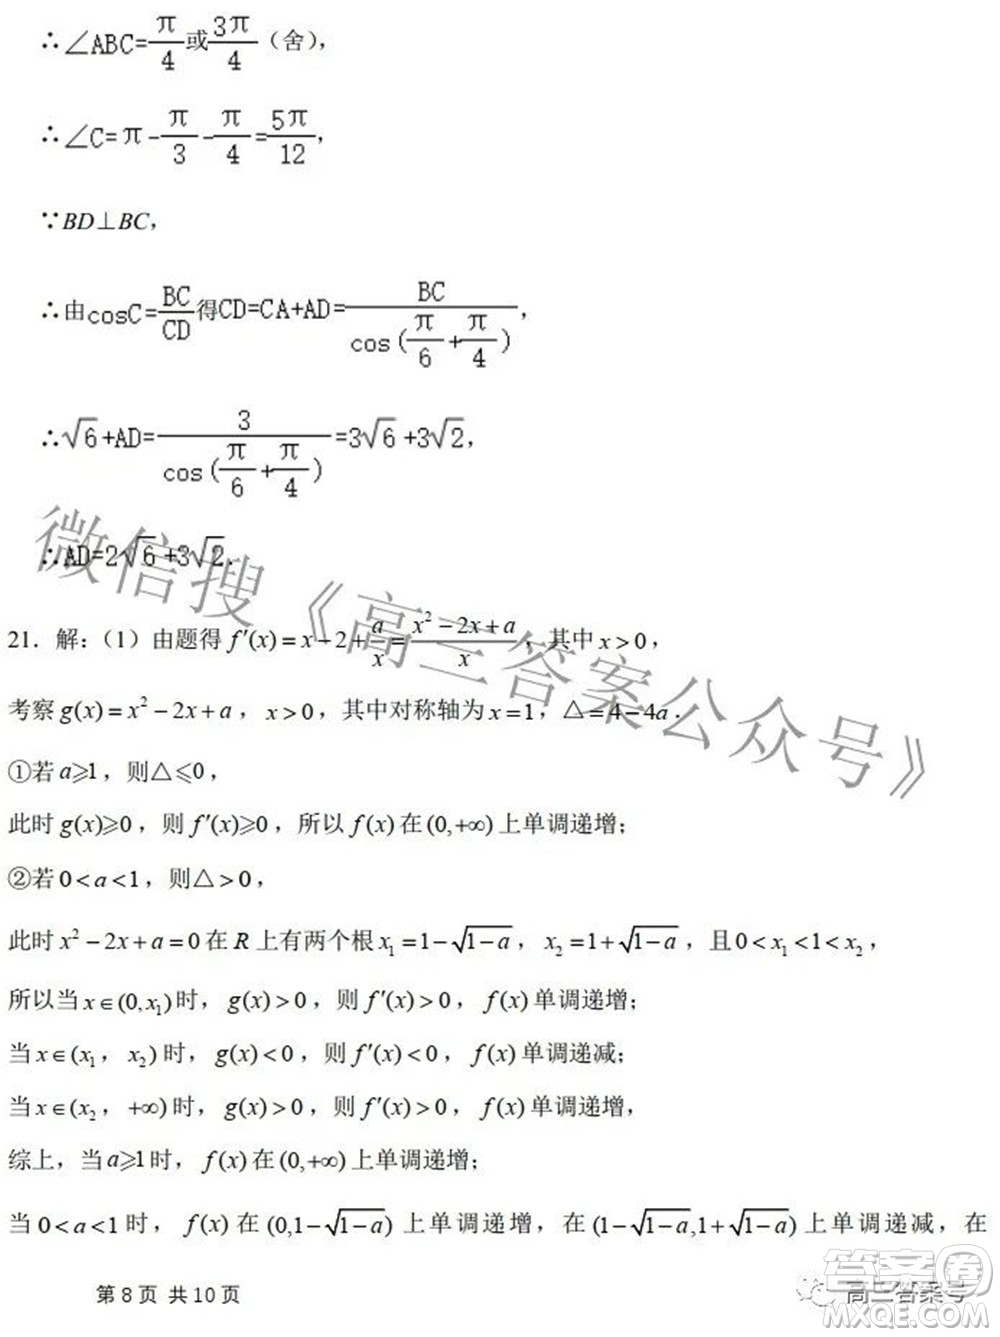 ∴∠ABC=π/4或3π/4（舍），
∴∠C=π-π/3-π/4=5π/12，
∵BD⊥BC，
∴由cosC=BC/CD得CD=CA+AD=BC/cos(π/6+π/4)，
∴√6+AD=3/cos(π/6+π/4)=3√6+3√2，
∴AD=2√6+3√2.
21．解：（1）由题得 f′(x)=x-2+a/x=(x²-2x+a)/x，其中 x>0，
考察 g(x)=x²-2x+a，x>0，其中对称轴为 x=1，△=4-4a．
①若 a⩾1，则△⩽0，
此时 g(x)⩾0，则 f′(x)⩾0，所以 f(x) 在 (0,+∞) 上单调递增；
②若 0<a<1，则△>0，
此时 x²-2x+a=0 在 R 上有两个根 x₁=1-√(1-a)，x₂=1+√(1-a)，且 0<x₁<1<x₂，
所以当 x∈(0,x₁) 时，g(x)>0，则 f′(x)>0，f(x) 单调递增；
当 x∈(x₁，x₂) 时，g(x)<0，则 f′(x)<0，f(x) 单调递减；
当 x∈(x₂，+∞) 时，g(x)>0，则 f′(x)>0，f(x) 单调递增，
综上，当 a⩾1 时，f(x) 在 (0,+∞) 上单调递增；
当 0<a<1 时，f(x) 在 (0,1-√(1-a)) 上单调递增，在 (1-√(1-a),1+√(1-a)) 上单调递减，在
第 8 页 共 10 页
微信搜《高三答案公众号》
高三答案号
答案圈
MXQE.COM